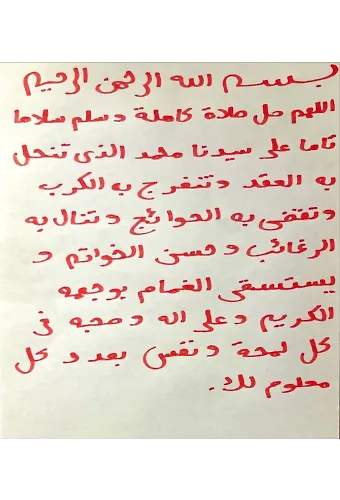 بسم الله الرحمن الرحيم
اللهم صل صلاة كاملة وسلم سلاما
تاما على سيدنا محمد الذى تنحل
به العقد وتنفرج ب الكرب
وتقضى به الحوائج وتنال به
الرغائب وحسن الخواتم و
يستسقى الغمام بوجهه
الكريم وعلى اله وصحبه فى
كل لمحة ونفس بعدد كل
معلوم لك.